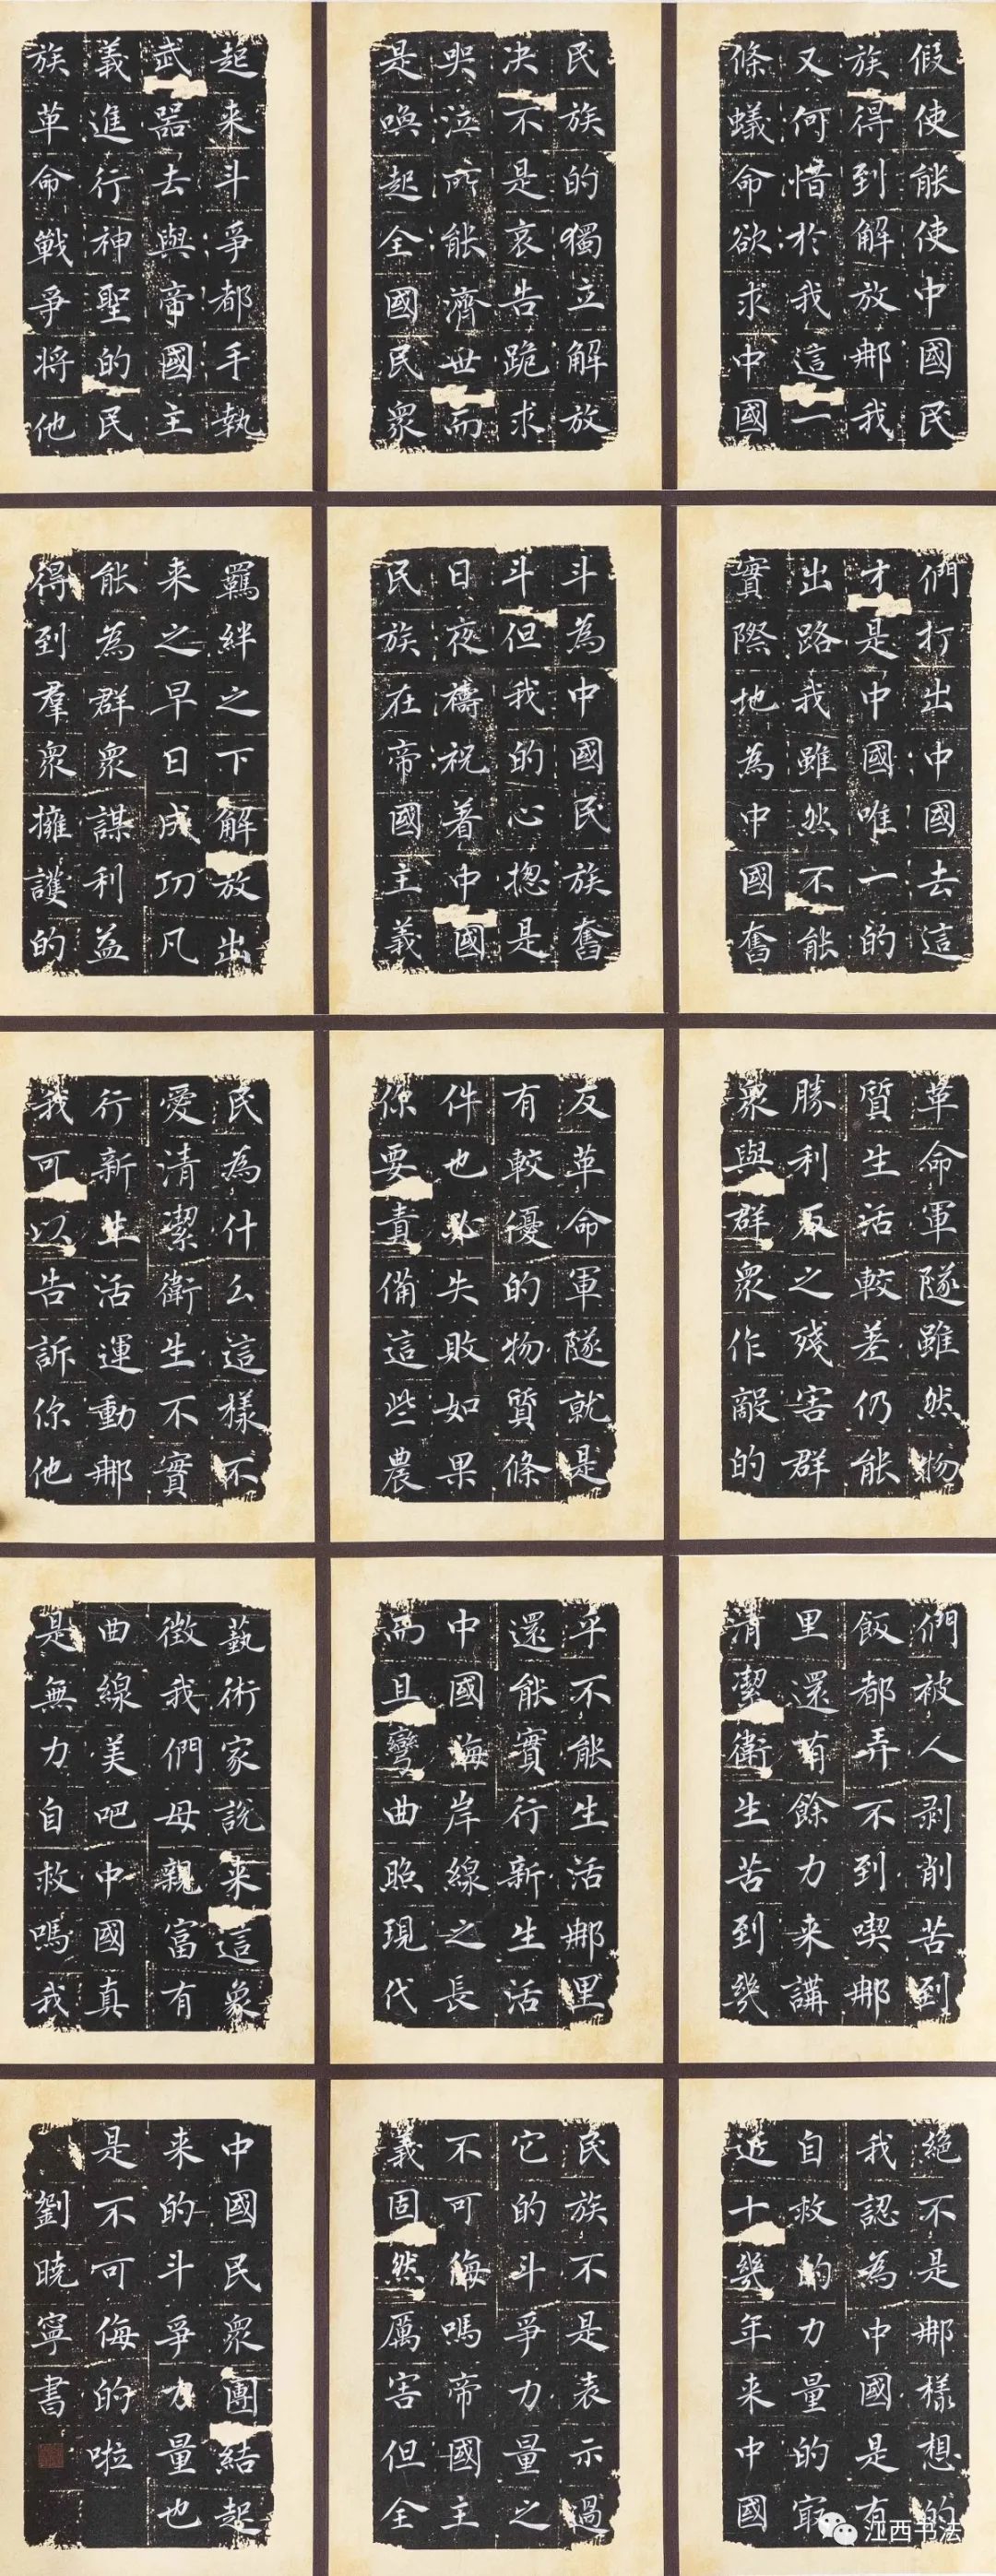 假使能使中國民
族得到解放那我
又何惜於我這一
條蟻命欲求中國
民族的獨立解放
决不是哀告跪求
哭泣所能濟世而
是喚起全國民眾
起来斗爭都手執
武器去與帝國主
義進行神聖的民
族革命戰爭将他
們打出中國去這
才是中國唯一的
出路我雖然不能
實際地為中國奮
斗為中國民族奮
斗但我的心揔是
日夜禱祝着中國
民族在帝國主義
羈絆之下解放出
来之早日成功凡
能為群眾謀利益
得到羣眾擁護的
革命軍隊雖然物
質生活較差仍能
勝利反之殘害群
眾與群眾作敵的
反革命軍隊就是
有較優的物質條
件也必失敗如果
你要責備這些農
民為什么這樣不
愛清潔衛生不實
行新生活運動那
我可以告訴你他
們被人剥削苦到
飯都弄不到喫那
里還有餘力来講
清潔衛生苦到幾
乎不能生活那里
還能實行新生活
中國海岸線之長
而且彎曲照現代
藝術家說来這象
徴我們母親富有
曲線美吧中國真
是無力自救嗎我
絕不是那樣想的
我認為中國是有
自救的力量的最
近十幾年来中國
民族不是表示過
它的斗爭力量之
不可侮嗎帝國主
義固然厲害但全
中國民眾團結起
来的斗爭力量也
是不可侮的啦
劉曉寧書
江西书法